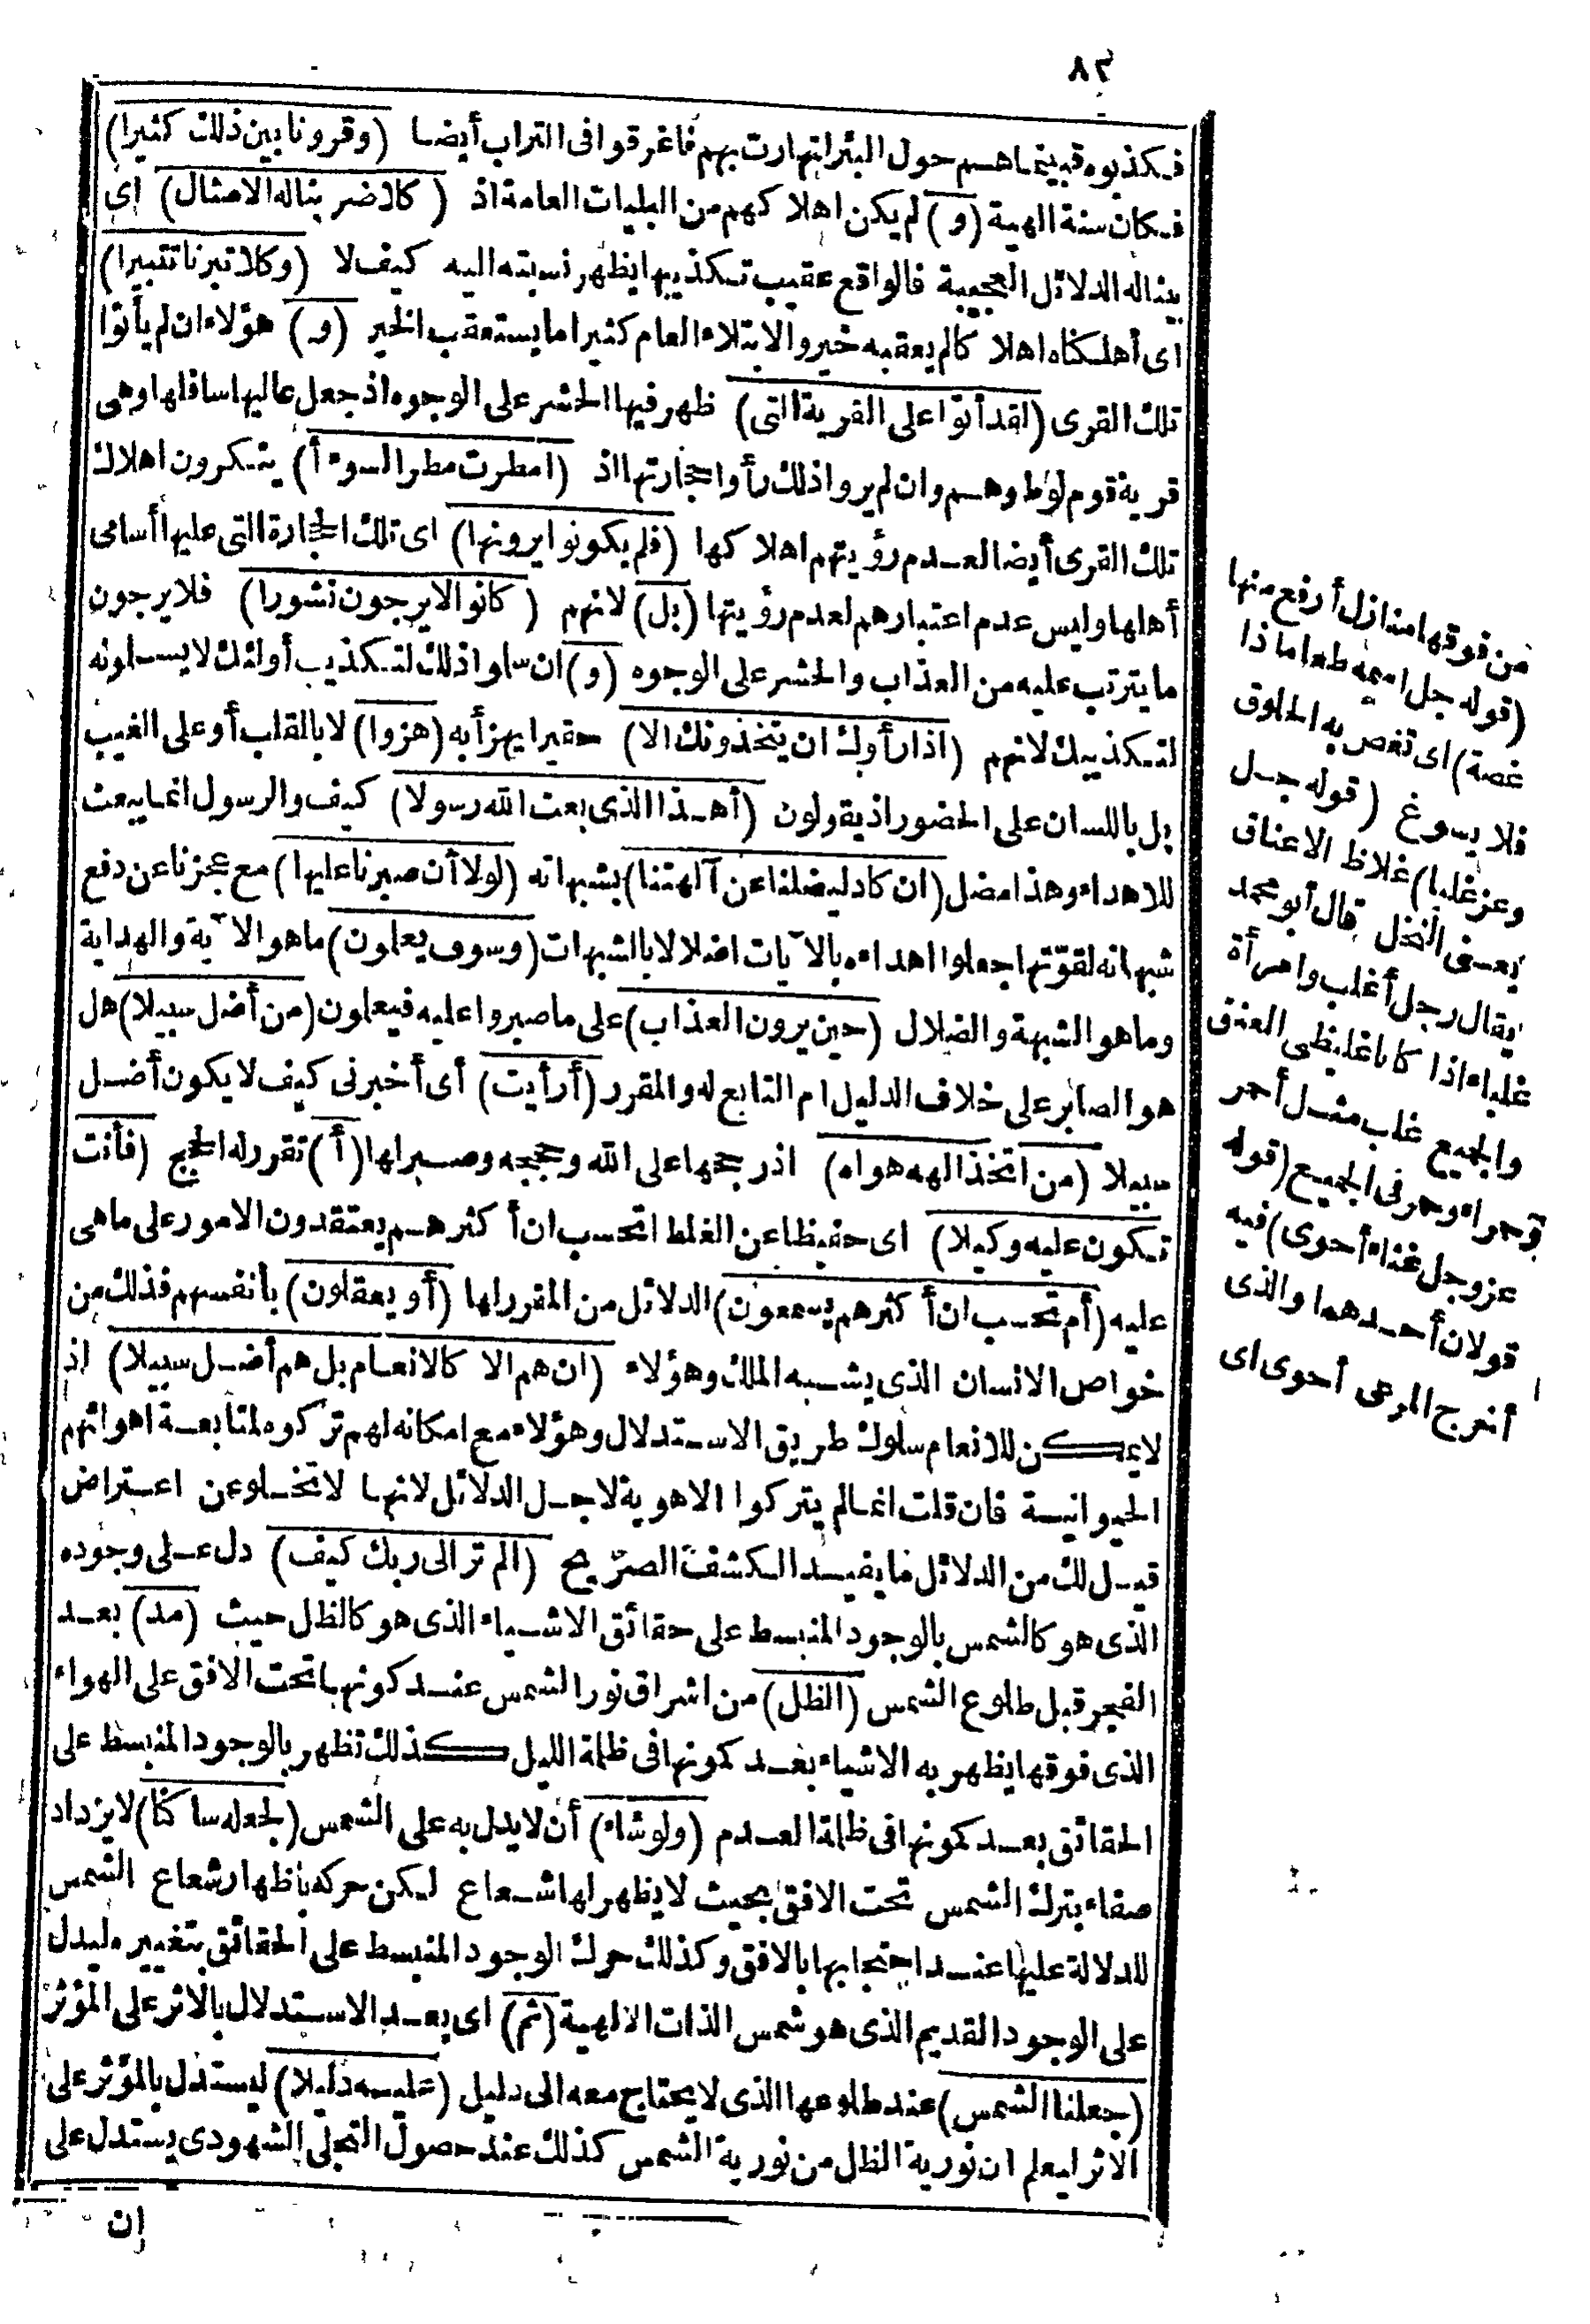 ٨٢
فكذبوه فبينما هم حول البئر انهارت بهم فاغرقوا فى التراب أيضا (وقرونا بين ذلك كثيرا)
فكان سنة الهية (و) لم يكن اهلاكهم من البليات العامة اذ (كلا ضربنا له الامثال) اى
بيناله الدلائل العجيبة فالواقع عقيب تكذيبها يظهر نسبته اليه كيف لا (وكلا تبرنا تتبيرا)
اى أهلكناه اهلاكا لم يعقبه خير والابتلاء العام كثيرا ما يستعقب الخير (و) هؤلاء ان لم يأتوا
تلك القرى (لقد أتوا على القرية التى) ظهر فيها الحشر على الوجوه اذ جعل عاليها سافلها وهى
قرية قوم لوط وهم وان لم يروا ذلك رأوا حجارتها اذ (امطرت مطر السوء أ) ينكرون اهلاك
تلك القرى أيضا لعدم رؤيتهم اهلاكها (فلم يكونوا يرونها) اى تلك الحجارة التى عليها أسامى
أهلها وليس عدم اعتبارهم لعدم رؤيتها (بل) لانهم (كانوا لا يرجون نشورا) فلا يرجون
ما يترتب عليه من العذاب والحشر على الوجوه (و) ان سلوا ذلك لتكذيب أولئك لا يسلونه
لتكذيبك لانهم (اذا رأوك ان يتخذونك الا) حقيرا يهزأ به (هزوا) لا بالقلب أو على الغيب
بل باللسان على الحضور اذ يقولون (أهذا الذى بعث الله رسولا) كيف والرسول انما يبعث
للاهداء وهذا مضل (ان كاد ليضلنا عن آلهتنا) بشبهاته (لولا أن صبرنا عليها) مع عجزنا عن دفع
شبهاته لقوتها جعلوا اهداءه بالآيات اضلالا بالشبهات (وسوف يعلون) ما هو الآية والهداية
وما هو الشبهة والضلال (حين يرون العذاب) على ما صبروا عليه فيعلون (من أضل سبيلا) هل
هو الصابر على خلاف الدليل ام التابع له والمقرر (أرأيت) أى أخبرنى كيف لا يكون أضل
سبيلا (من اتخذ الهه هواه) اذ رجحها على الله وحججه وصبر لها (أ) تقرر له الحجج (فأنت
تكون عليه وكيلا) اى حفيظا عن الغلط اتحسب ان أكثرهم يعتقدون الامور على ما هى
عليه (أم تحسب ان أكثرهم يسمعون) الدلائل من المقرر لها (أو يعقلون) بأنفسهم فذلك من
خواص الانسان الذى يشبه الملك وهؤلاء (ان هم الا كالانعام بل هم أضل سبيلا) اذ
لا يمكن للانعام سلوك طريق الاستدلال وهؤلاء مع امكانه لهم تركوه لمتابعة اهوائهم
الحيوانية فان قلت انما لم يتركوا الاهوية لاجل الدلائل لانها لا تخلو عن اعتراض
قيل لك من الدلائل ما يفيد الكشف الصريح (الم تر الى ربك كيف) دل على وجوده
الذى هو كالشمس بالوجود المنبسط على حقائق الاشياء الذى هو كالظل حيث (مد) بعد
الفجر قبل طلوع الشمس (الظل) من اشراق نور الشمس عند كونها تحت الافق على الهواء
الذى فوقها يظهر به الاشياء بعد كونها فى ظلة الليل كذلك تظهر بالوجود المنبسط على
الحقائق بعد كونها فى ظلة العدم (ولو شاء) أن لا يدل به على الشمس (لجعله ساكنا) لا يزداد
صفاء بترك الشمس تحت الافق بحيث لا يظهر لها شعاع لكن حركه باظهار شعاع الشمس
للدلالة عليها عند احتجابها بالافق وكذلك حرك الوجود المنبسط على الحقائق بتغييره ليدل
على الوجود القديم الذى هو شمس الذات الالهية (ثم) اى بعد الاستدلال بالاثر على المؤثر
(جعلنا الشمس) عند طلوعها الذى لا يحتاج معه الى دليل (عليه دليلا) ليستدل بالمؤثر على
الاثر ليعلم ان نورية الظل من نورية الشمس كذلك عند حصول التجلى الشهودى يستدل على
ان
من فوقها منازل أرفع منها
(قوله جل اسمه طعاما ذا
غصة) اى تغص به الحلوق
فلا يسوغ (قوله جل
وعز غلبا) غلاظ الاعناق
يعنى النخل قال أبو محمد
يقال رجل أغلب وامرأة
غلباء اذا كانا غليظى العنق
والجميع غلب مثل أحمر
وحمراء وحمر فى الجميع (قوله
عز وجل غثاء أحوى) فيه
قولان أحدهما والذى
أخرج المرعى أحوى اى